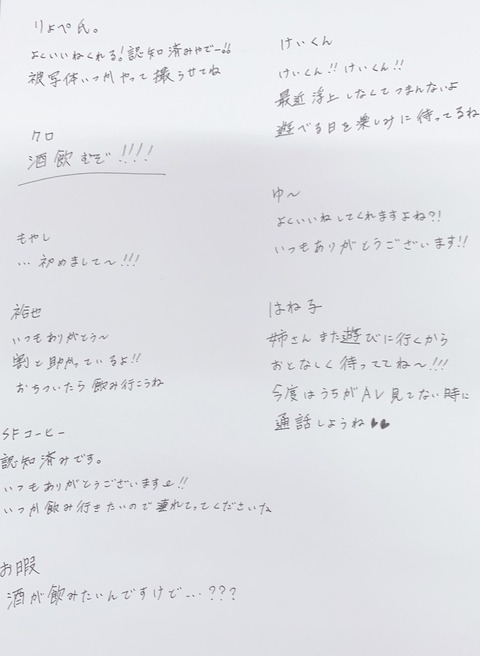 りょぺ氏。
よくいいねくれる!認知済みやでー!!
被写体いつかやって撮らせてね
クロ
酒飲むぞ!!!!
もやし
…初めまして〜!!!
裕也
いつもありがとう〜
割と助かっているよ!!
おちついたら飲み行こうね
SFコーヒー
認知済みです。
いつもありがとうございます!!
いつか飲み行きたいので連れてってくださいな
お暇
酒が飲みたいんですけど…???
けいくん
けいくん!!けいくん!!
最近浮上しなくてつまんないよ
遊べる日を楽しみに待ってるね
ゆ〜
よくいいねしてくれますよね?!
いつもありがとうございます!!
はね子
姉さんまた遊びに行くから
おとなしく待っててね〜!!!
今度はうちがAV見てない時に
通話しようね♥♥